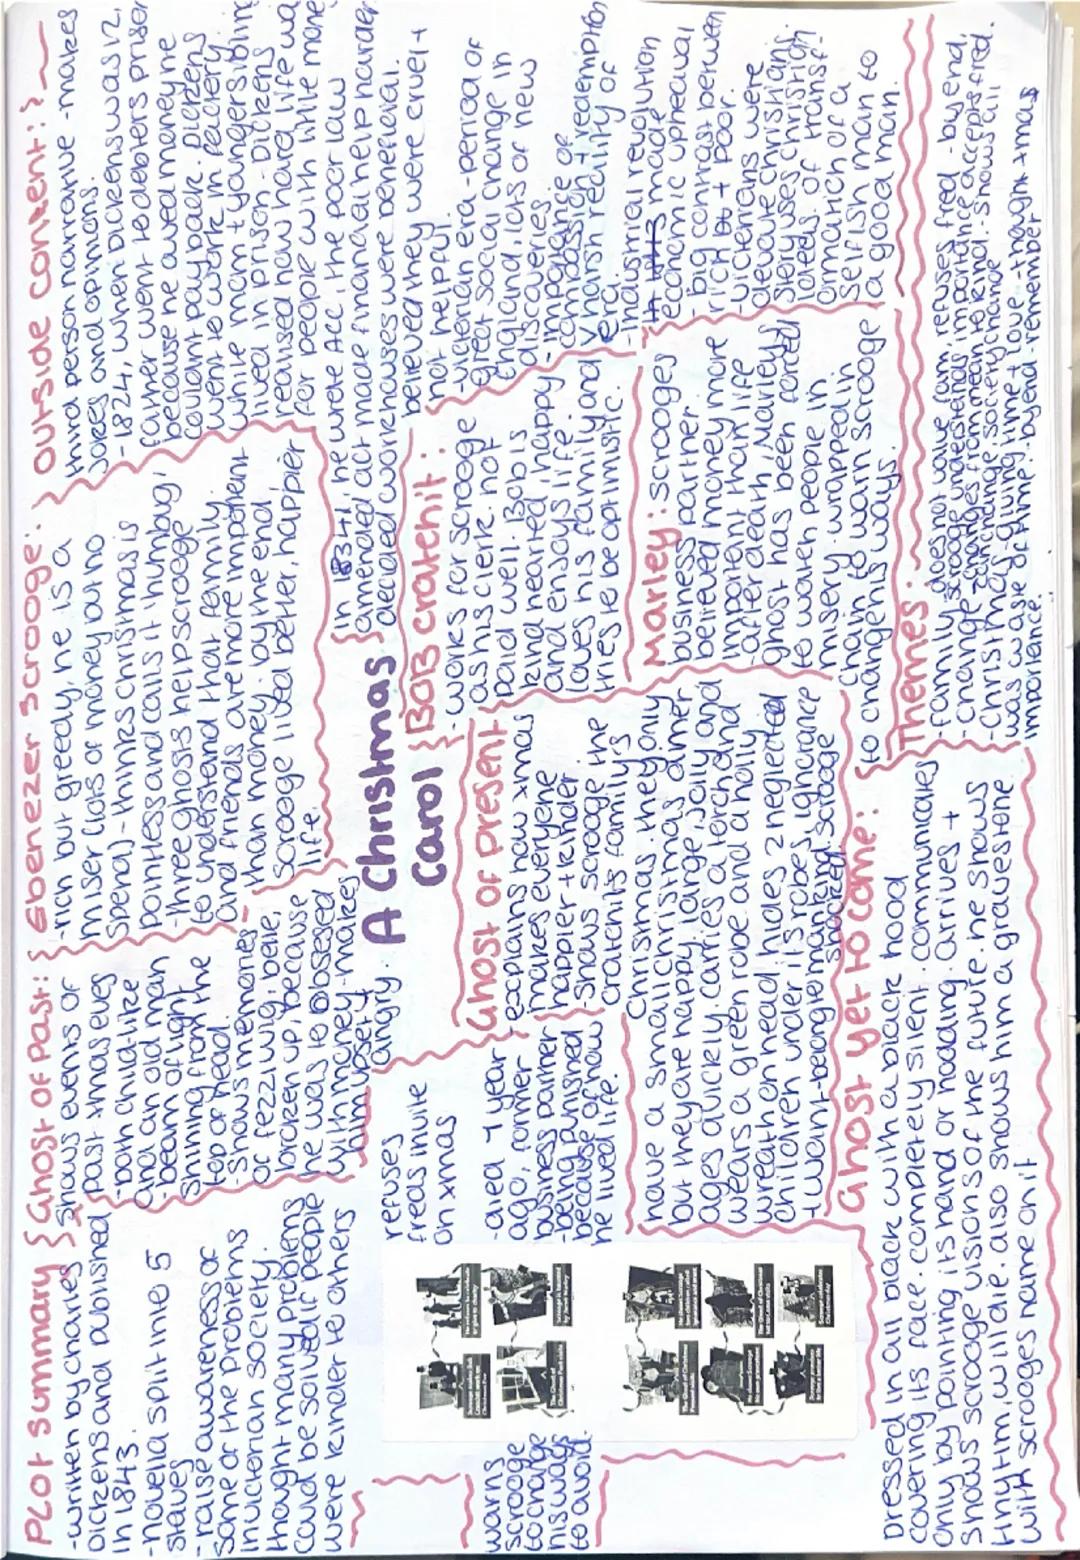 Plot summary
-written by charles
dickens and published
in 1843.
-novella split into 5
staves
-raise awareness of
some of the problems
in victorian society.
thought many problems
could be solved if people
were kinder to others
Ghost of Past:
shows events of
past xmas eves
-both child-like
and an old man
-beam of light
shining from the
top of head.
-shows memories
of fezziwig, belle,
broken up, because
he was to obsessed
with money - makes
him upset,
angry.
Ebenezer Scrooge:
-rich but greedy, he is a
miser (lots of money but no
spend) - thinks christmas is
pointless and calls it 'humbug'
-three ghosts help scrooge
to understand that family
and friends are more important
than money. by the end
scrooge lived better, happier
life.
Outside context:
third person narrative - makes
jokes and opinions.
- 1824, when Dickens was 12,
father went to debters prison
because he owed money he
couldnt pay back. Dickens
went to work in factory
while mom + younger sibling
lived in prison - Dickens
realised how hard life was
for people with little money
In 1834, he wrote ACC, the poor law
amended act made financial help harder
decided workhouses were beneficial.
believed they were cruel +
not helpful.
-victorian era - period of
great social change in
England, lots of new
discoveries
-importance of
compassion + redemption
v harsh reality of
era.
-industrial revolution
made
economic upheaval
-big contrast between
rich + poor.
victorians were
devoute christians.
Story uses christian
ideas of transf-
ormation of a
selfish man to
a good man.
A Christmas
Carol
BOB cratchit:
-works for scrooge
as his clerk. not
paid well. Bob is
kind hearted, happy
and enjoys life.
loves his family and
tries to be optimistic.
Marley: scrooges
business partner.
believed money more
important than life
-after death, Marleys
ghost has been forced
to watch people in
misery, wrapped in
chain to warn scrooge
to change his ways.
refuses
freds invite
on xmas
-died 7 year
ago, former
business partner
-being punished
because of how
he lived life.
warns
scrooge
to change
his ways
to avoid.
Ghost of present
-explains how xmas
makes everyone
happier + kinder
-shows scrooge the
cratchits family's
christmas. they only
have a small christmas dinner
but they are happy. large, jolly and
ages quickly. carries a torch and
wears a green robe and a holly
wreath on head, hides 2 neglected
children under its robes, ignorance
+ want - being mankind, scrooge
shocked
Ghost yet to come:
Dressed in all black with a black hood
covering its face. completely silent. communicates
only by pointing its hand or nodding. arrives +
shows scrooge visions of the future. he shows
tiny tim, will die. also shows him a gravestone
with scrooges name on it
Themes:
-family, does not value fam, refuses fred. by end,
scrooge understands importance, accepts fred.
-change - changes from mean to kind. shows all
can change, society change
-christmas, giving time + love - thought xmas
was waste of time. by end - remember
importance.